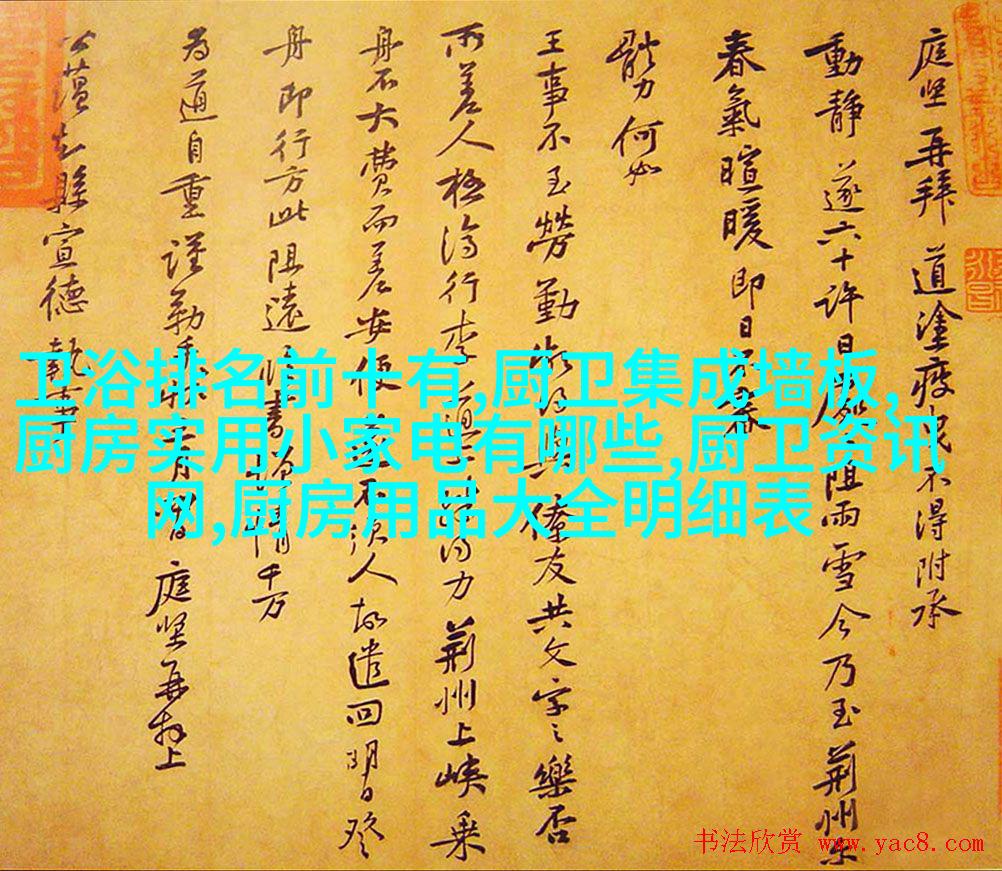 庭堅再拜道塗疲曳不得附承
動靜遂六十許日
阻雨雪今乃至荊州
春氣暄暖即日不審
體力何如
王事不至勞勤
僚友共文字之樂否
所差人極濟行李
得力荊州上峽乗
舟不大費而差安便
不須人故遣回明日登
舟即行方此阻遠
千万
為道自重謹勒
庭堅再拜上
宣德執事
卫浴排名前十有,厨卫集成墙板,
厨房实用小家电有哪些,厨卫资讯
网,厨房用品大全明细表
书法欣赏 www.yac8.com